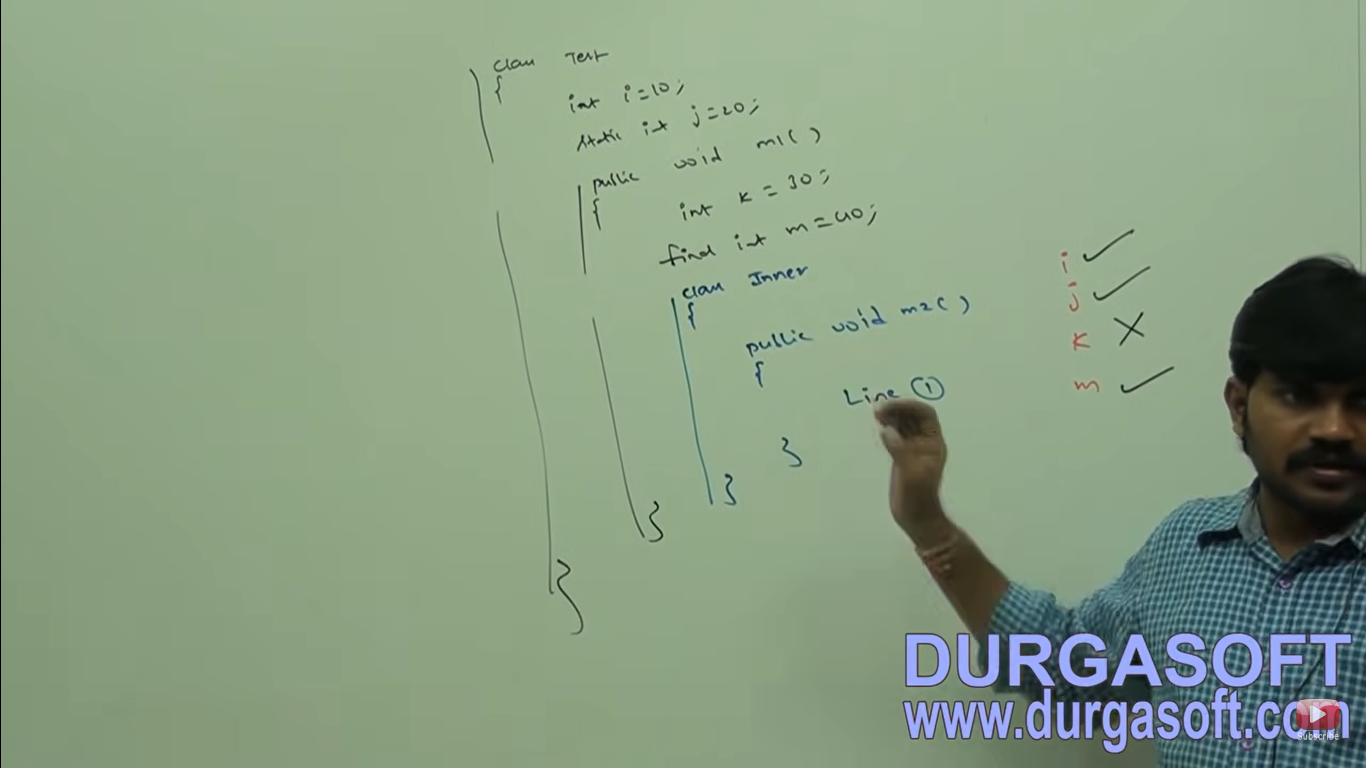 class Test
{
int i=10;
static int j=20;
public void m1( )
{
int k = 30;
final int m=40;
class Inner
{
public void m2( )
{
Line ①
}
}
}
}
i ✓
j ✓
k X
m ✓
DURGASOFT
www.durgasoft.com
Subscribe